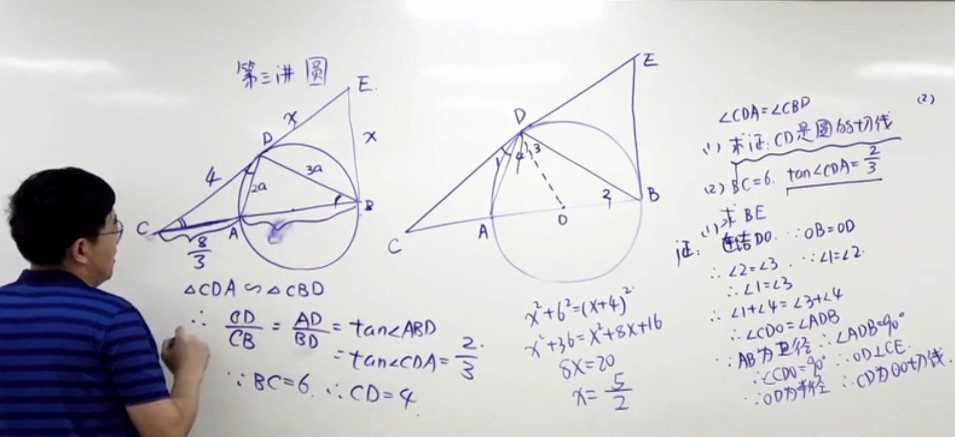 第三讲 圆
E
x
D
x
4
3a
2a
C
A
B
8/3
△CDA∽△CBD
∴ CD/CB = AD/BD = tan∠ABD
= tan∠CDA = 2/3
∵BC=6 ∴CD=4
E
D
1
4
3
2
B
O
A
C
x²+6²=(x+4)²
x²+36=x²+8x+16
8x=20
x=5/2
∠CDA=∠CBD
(2)
(1) 求证:CD是圆的切线
(2) BC=6. tan∠CDA=2/3
求BE
证:(1) 连结DO ∵OB=OD
∴∠2=∠3 ∵∠1=∠2
∴∠1=∠3
∴∠1+∠4=∠3+∠4
∴∠CDO=∠ADB
∵AB为直径 ∴∠ADB=90°
∴∠CDO=90° ∴OD⊥CE
∵OD为半径 ∴CD为⊙O切线